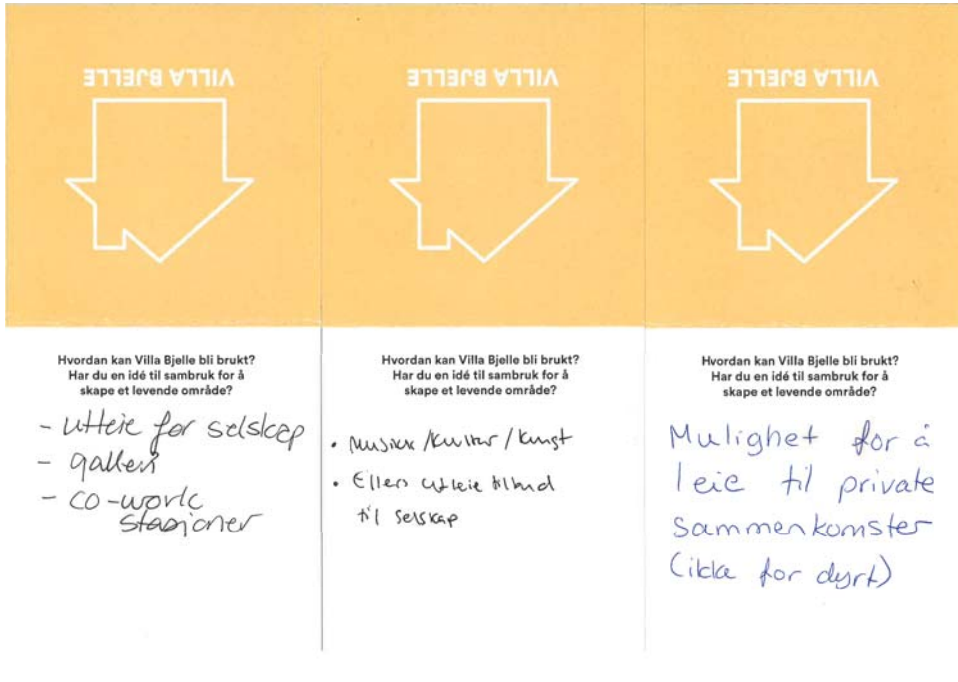 VILLA BJELLE
Hvordan kan Villa Bjelle bli brukt?
Har du en idé til sambruk for å
skape et levende område?
- utleie for selskap
- galleri
- co-work
stasjoner
VILLA BJELLE
Hvordan kan Villa Bjelle bli brukt?
Har du en idé til sambruk for å
skape et levende område?
• Musikk/Kultur/Kunst
• Ellers utleie tilbud
til selskap
VILLA BJELLE
Hvordan kan Villa Bjelle bli brukt?
Har du en idé til sambruk for å
skape et levende område?
Mulighet for å
leie til private
sammenkomster
(ikke for dyrt)